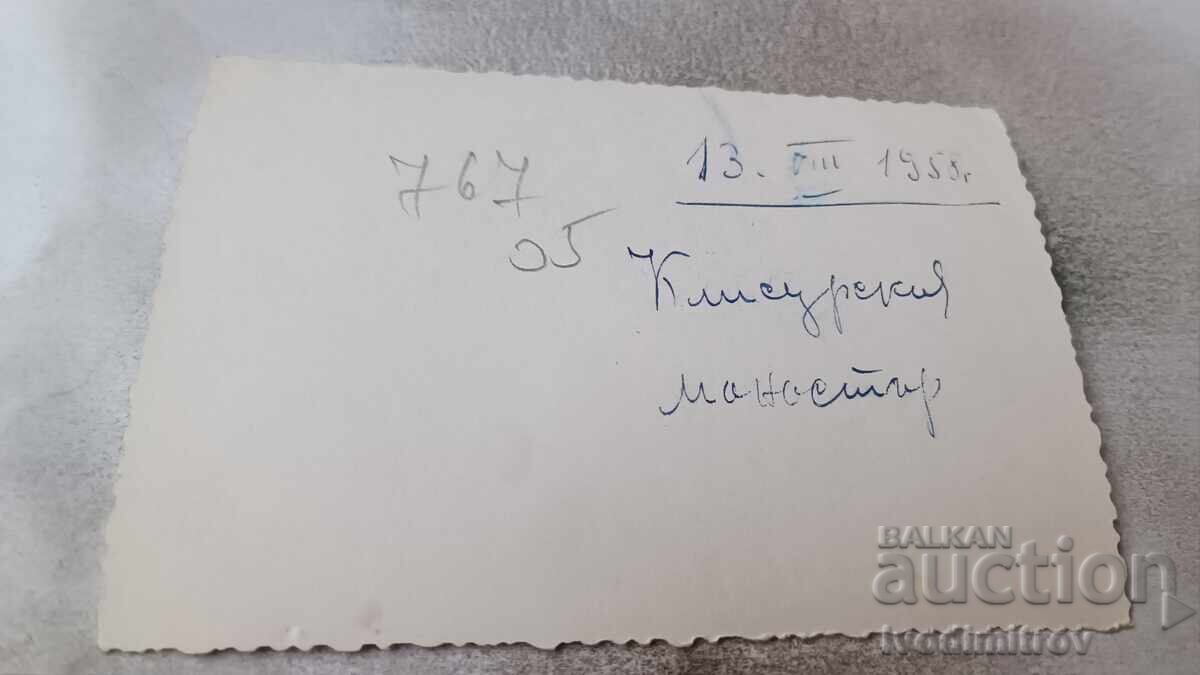 767
05
13. VIII 1958г
Клисурския
монастир
BALKAN
auction
ivodimitrov